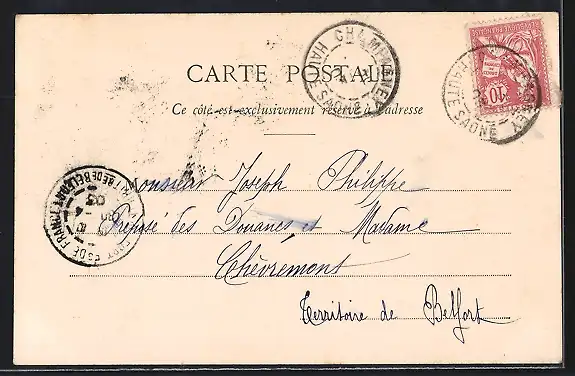 CARTE POSTALE
Ce côté est exclusivement réservé à l'adresse
CHAMPAGNEY
HAUTE SAÔNE
Monsieur Joseph Philippe
Préposé des Douanes et Madame
Chèvremont
Territoire de Belfort